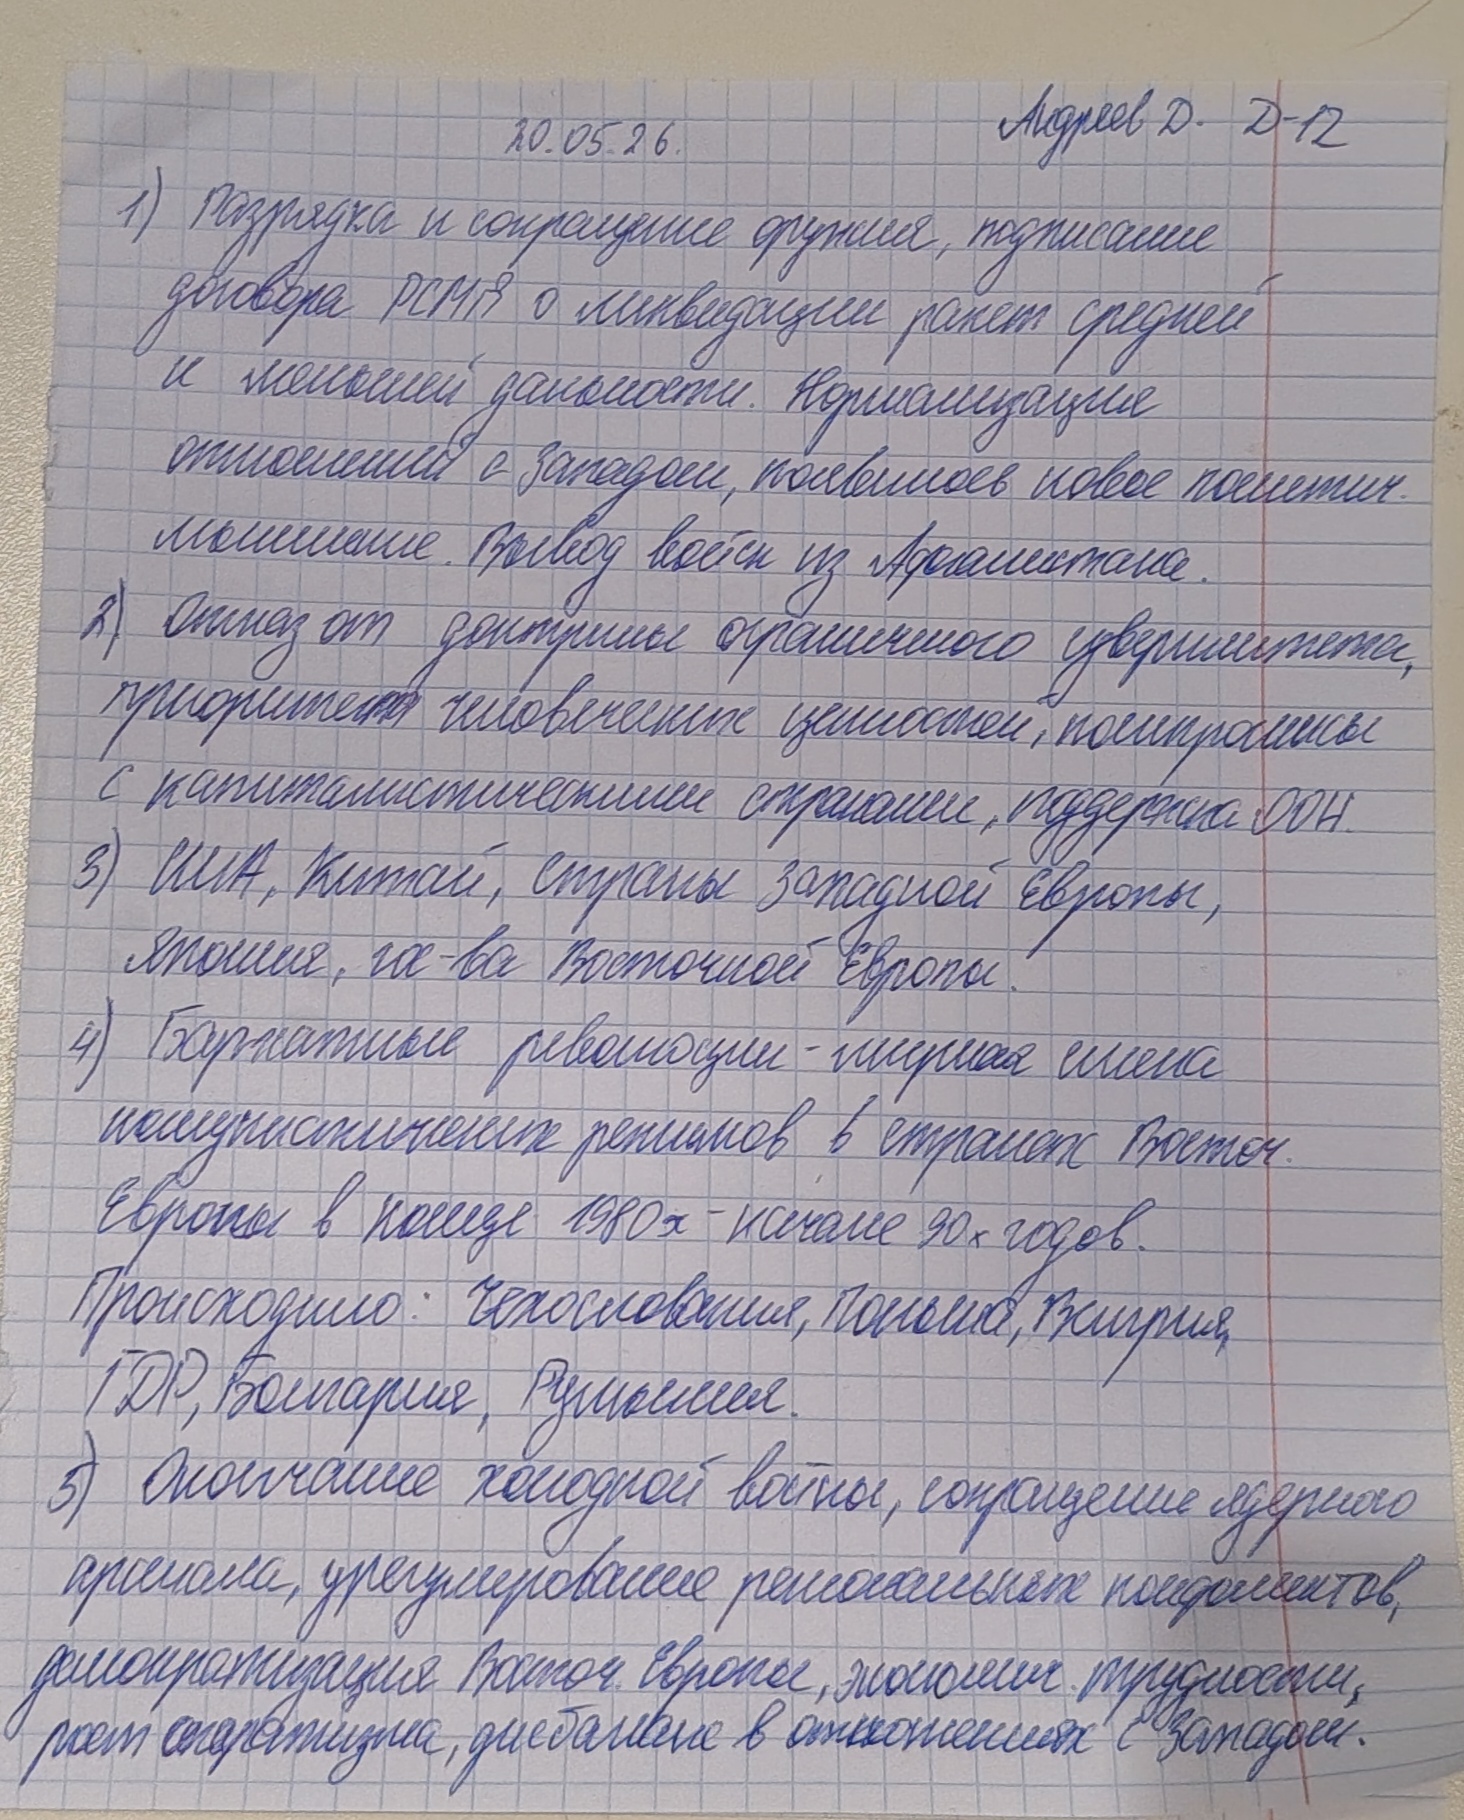 20.05.26.
Андреев Д. Д-12
1) Разрядка и сокращение оружия, подписание
договора РСМД о ликвидации ракет средней
и меньшей дальности. Нормализация
отношений с Западом, появилось новое политич.
мышление. Вывод войск из Афганистана.
2) Отказ от доктрины ограниченого суверинитета,
приоритет человеческих ценностей, компромисы
с капиталистическими странами, поддержка ООН.
3) США, Китай, страны Западной Европы,
Япония, гос-ва Восточной Европы.
4) Бархатные революции - мирная смена
коммунистических режимов в странах Восточ.
Европы в конце 1980х - начале 90х годов.
Происходило: Чехословакия, Польша, Венгрия,
ГДР, Болгария, Румыния.
5) Окончание холодной войны, сокращение ядерного
арсенала, урегулирование региональных конфликтов,
демократизация Восточ. Европы, экономич. трудности,
рост сепаратизма, дисбаланс в отношениях с Западом.